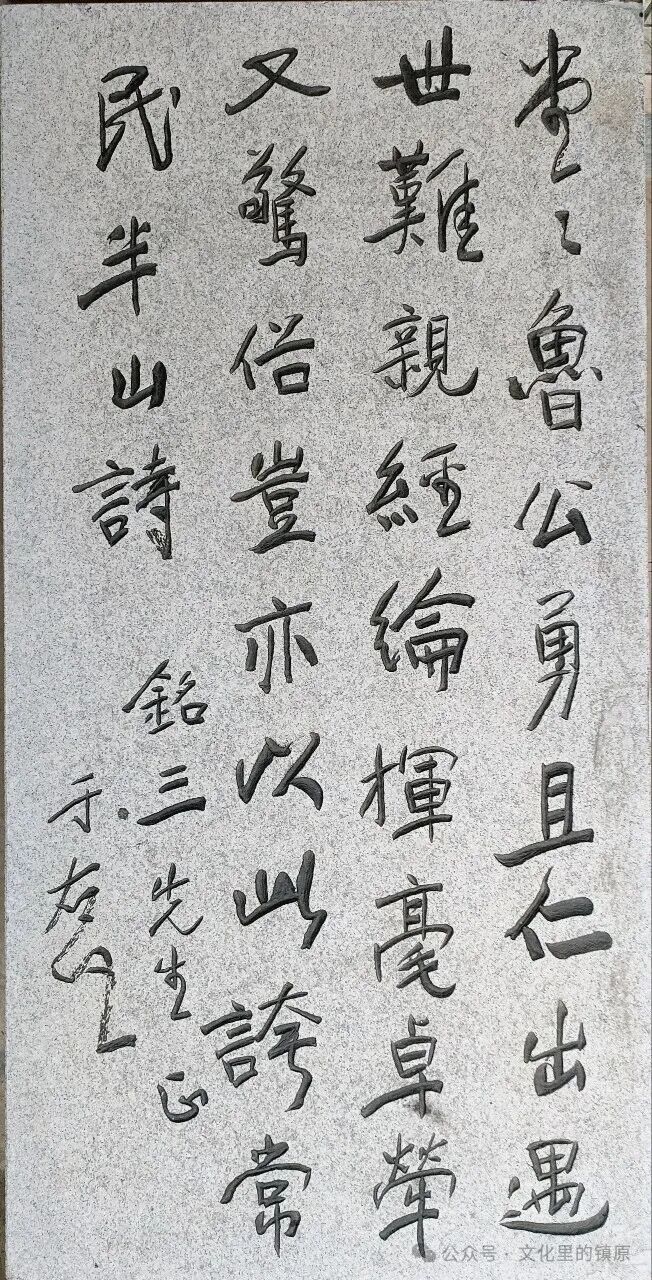 堂〻魯公勇且仁出遇
世難親經綸揮毫卓犖
又驚俗豈亦以此誇常
民半山詩
銘三先生正
于右任
公众号 · 文化里的镇原